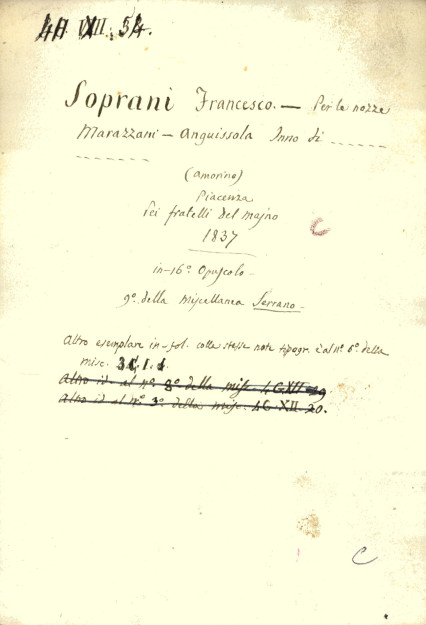 XII. 54.
Soprani Francesco. — Per le nozze
Marazzani – Anguissola Inno di ------
-------
(amorino)
Piacenza
Pei fratelli del majno
1837
in-16º Opuscolo -
9º della miscellanea Serrano -
Altro esemplare in-fol. colle stesse note tipogr. è al nº 6º della
misc. 3C.I.1.
Altro id. al nº 8º della misc. 4G XII 29
Altro id al nº 3º della misc. 4G. XII. 20.
C
C